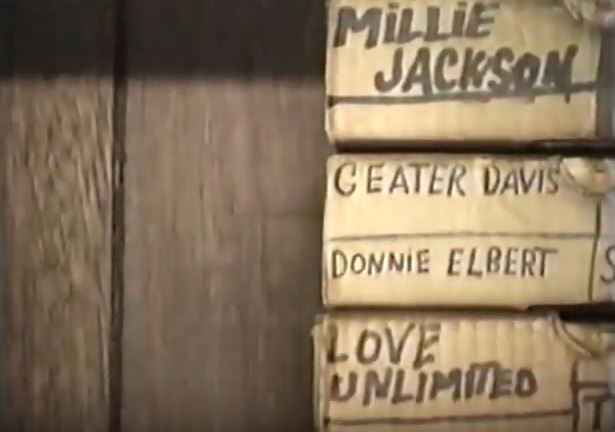 MILLIE
JACKSON
GEATER DAVIS
DONNIE ELBERT
S
LOVE
UNLIMITED
T